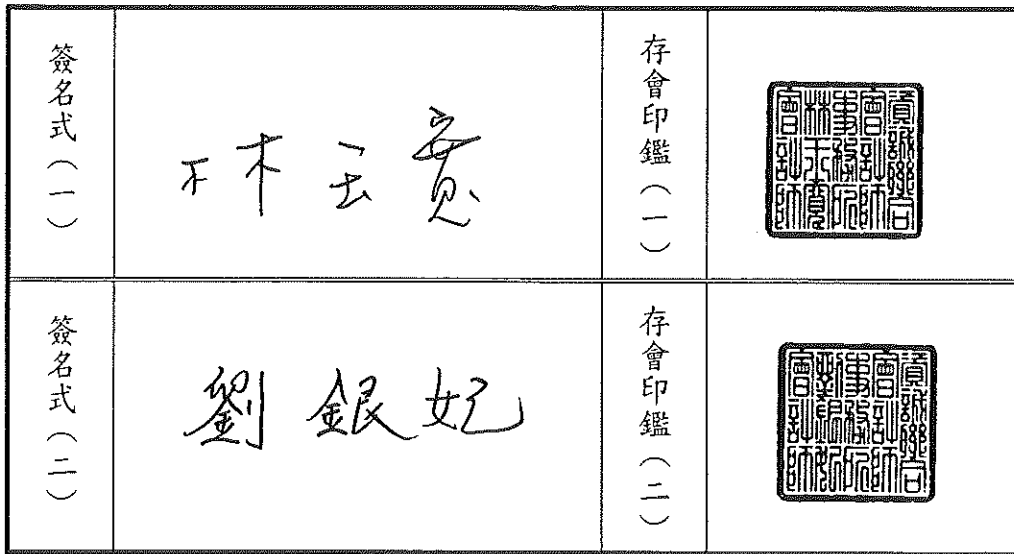 簽名式（一）
林玉寬
存會印鑑（一）
資誠聯合
會計師
事務所
林玉寬
會計師
簽名式（二）
劉銀妃
存會印鑑（二）
資誠聯合
會計師
事務所
劉銀妃
會計師